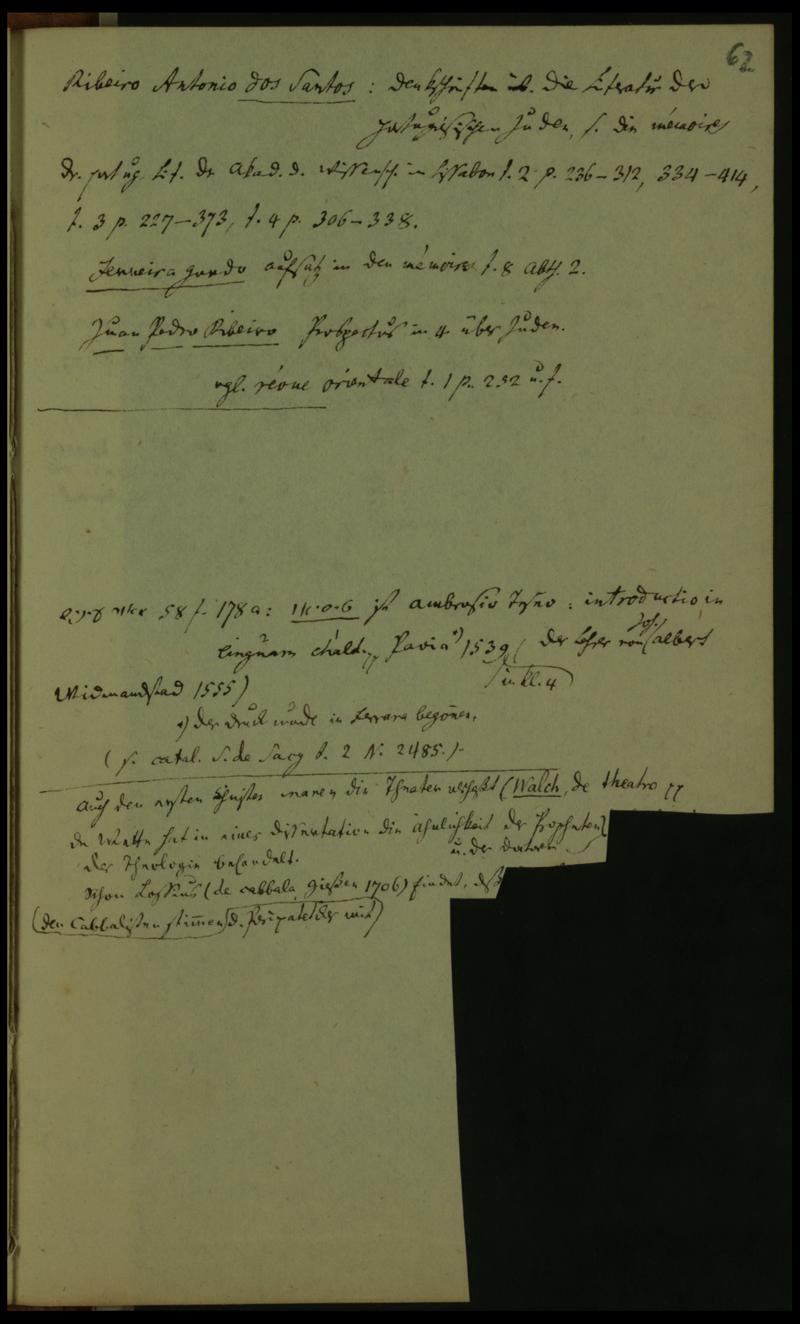 62
Ribeiro Antonio dos Santos : Denkschriften üb. die Literatur der
portugiesischen Juden, s. die mémoires
der portug. Lit. der Akad. d. Wissensch. in Lissabon t. 2 p. 236–312, 334–414,
t. 3 p. 227–373, t. 4 p. 306–338.
Ferreira Gordo Aufsatz in den mémoires t. 8 Abth. 2.
Juan Pedro Ribeiro Prospectus in 4 über Juden.
vgl. révue orientale t. 1 p. 252 u. f.
58 f. 178a: ist Ambrosio Teseo : introductio in
linguam chald. Pavia 1539 (der Lehrer von Joh. Albert
in kl. 4
Widmandstad 1555)
a) der Druck wurde in Ferrara begonnen.
(s. catal. S. de Sacy t. 2 N. 2485.)
Auch den ersten Christen waren die Theater verhaßt (Walch, de theatro
de Wette hat in einer Dissertation die Ähnlichkeit der Propheten
u. der
der Theologie behandelt.
Schon Lossius (de cabbala Gießen 1706) findet, daß
(den Cabbalisten stimmen d. Peripatetiker mit)